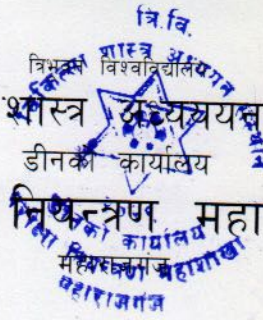 त्रि.वि.
त्रिभुवन विश्वविद्यालय
शास्त्र अध्ययन
डीनको कार्यालय
नियन्त्रण महा
महाराजगंज
शास्त्र अध्ययन
डीनको कार्यालय
नियन्त्रण महाशाखा
महाराजगंज